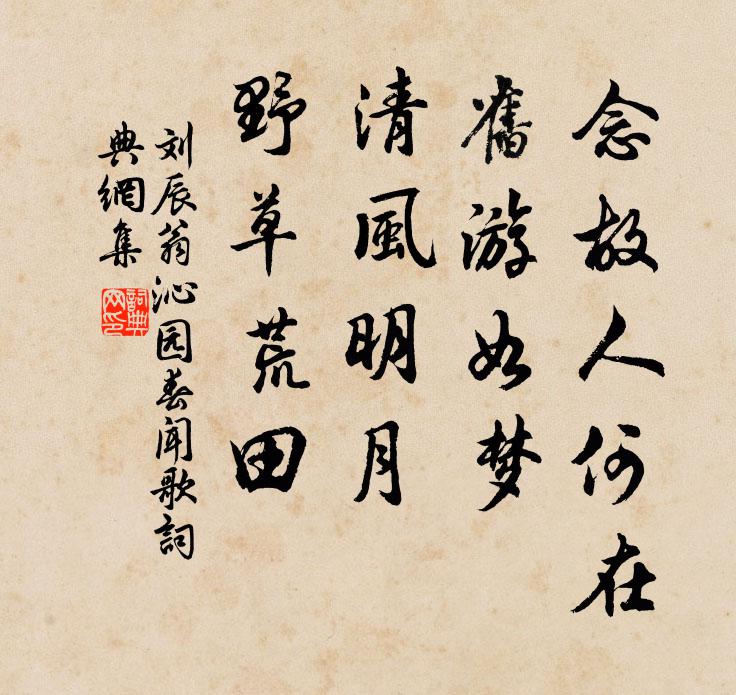 念故人何在
舊游如梦
清風明月
野草荒田
刘辰翁沁园春闻歌詞
典網集
詞典网印